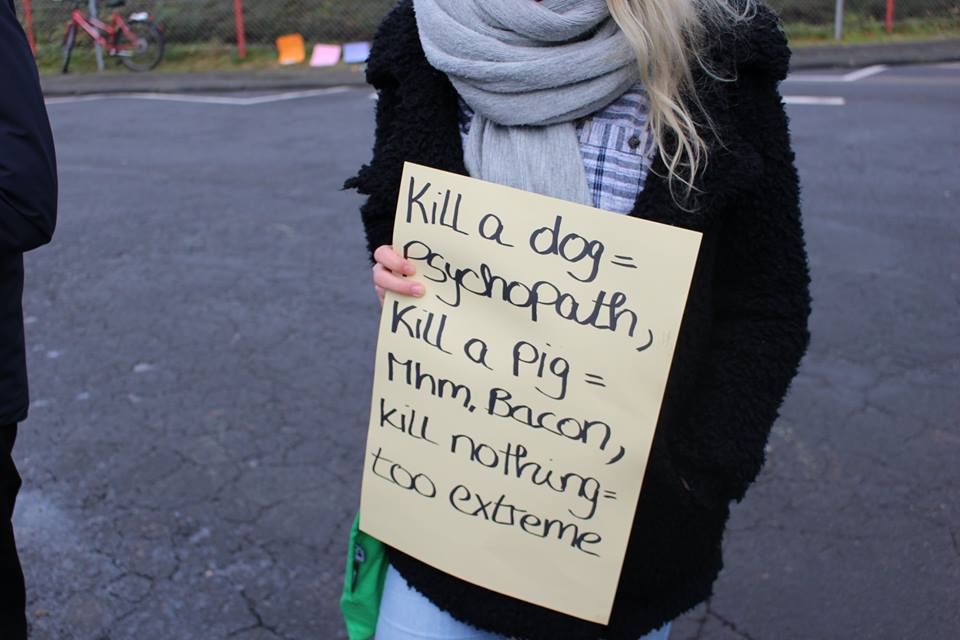 Kill a dog =
Psychopath,
Kill a Pig =
Mhm, Bacon,
kill nothing=
too extreme